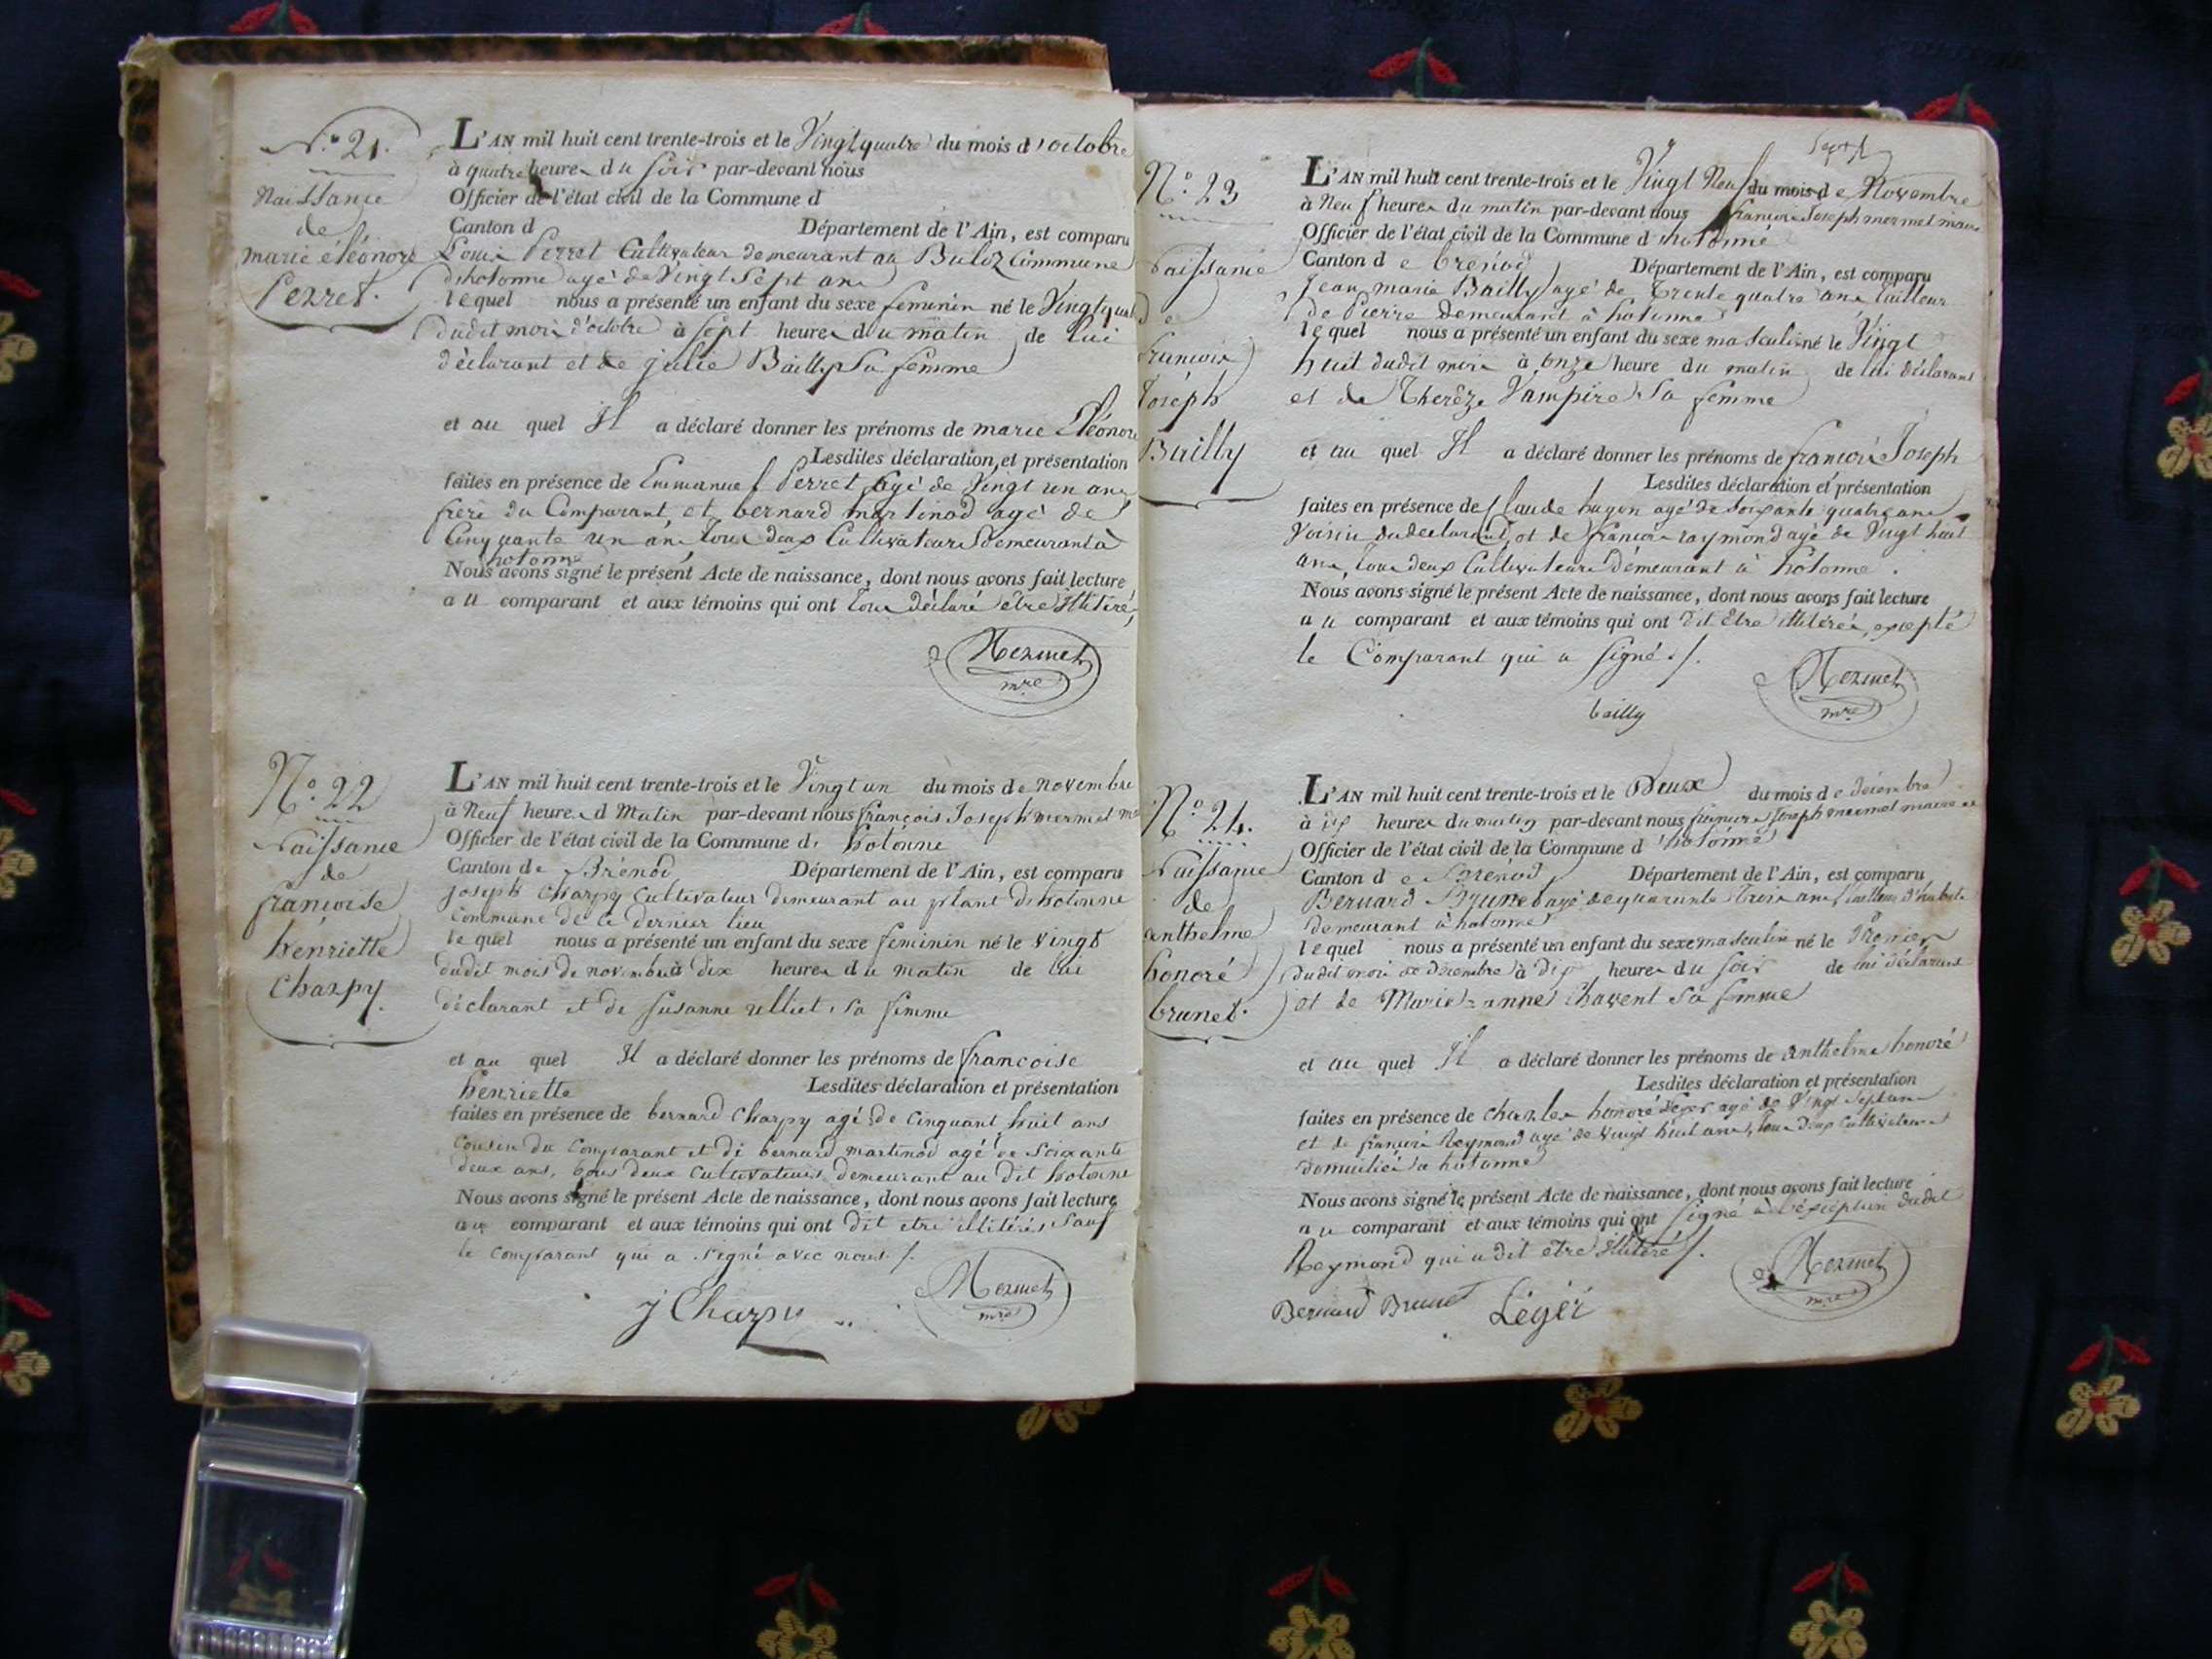 N.º 21.
Naissance
de
marie éléonore
Perret.
L'AN mil huit cent trente-trois et le Vingt quatre du mois d'octobre
à quatre heures du soir par-devant nous
Officier de l'état civil de la Commune d
Canton d Département de l'Ain, est comparu
Louis Perret Cultivateur demeurant au Buloz Commune
d'hotonne agé de Vingt Sept ans
lequel nous a présenté un enfant du sexe feminin né le Vingt quatre
dudit mois d'octobre à Sept heures du matin de lui
déclarant et de julie Bailly Sa femme
et au quel Il a déclaré donner les prénoms de marie Eléonore
Lesdites déclaration et présentation
faites en présence de Emmanuel Perret agé de Vingt un ans
frère du Comparant, et bernard martinod agé de
Cinquante un ans tous deux Cultivateurs demeurant à
hotonne
Nous avons signé le présent Acte de naissance, dont nous avons fait lecture
au comparant et aux témoins qui ont tous déclaré être Illitéré
Mermet
mre
N.º 22
Naissance
de
françoise
henriette
Charpy.
L'AN mil huit cent trente-trois et le Vingt un du mois de novembre
à Neuf heures d Matin par-devant nous françois Joseph mermet
Officier de l'état civil de la Commune d' hotonne
Canton de Brénod Département de l'Ain, est comparu
joseph Charpy Cultivateur demeurant au plant d'hotonne
Commune de ce dernier lieu
lequel nous a présenté un enfant du sexe feminin né le vingt
dudit mois de novembre à dix heures du matin de lui
déclarant et de Susanne sa femme
et au quel Il a déclaré donner les prénoms de françoise
henriette Lesdites déclaration et présentation
faites en présence de bernard Charpy agé de Cinquant huit ans
cousin du Comparant et de bernard martinod agé de Soixante
deux ans, tous deux Cultivateurs demeurant au dit hotonne
Nous avons signé le présent Acte de naissance, dont nous avons fait lecture
au comparant et aux témoins qui ont dit etre illitérés Sauf
le comparant qui a signé avec nous ./.
J Charpy
Mermet
mre
N.º 23
Naissance
de
francois
Joséph
Bailly
L'AN mil huit cent trente-trois et le Vingt Neuf du mois de Novembre
à Neuf heures du matin par-devant nous francois Joseph mermet maire
Officier de l'état civil de la Commune d'hotonne
Canton de brenod Département de l'Ain, est comparu
Jean marie Bailly agé de Trente quatre ans tailleur
de Pierre demeurant à hotonne
lequel nous a présenté un enfant du sexe masculin né le Vingt
huit dudit mois à onze heure du matin de lui déclarant
et de Therèze Vampire Sa femme
et au quel Il a déclaré donner les prénoms de francois Joseph
Lesdites déclaration et présentation
faites en présence de Claude hugon agé de Soixante quatre ans
Voisin du declarant, et de francois raymond agé de Vingt huit
ans, tous deux Cultivateurs demeurant à hotonne.
Nous avons signé le présent Acte de naissance, dont nous avons fait lecture
au comparant et aux témoins qui ont dit Etre illitérés, excepté
le Comparant qui a signé ./.
bailly
Mermet
mre
N.º 24.
Naissance
de
anthelme
honoré
brunet.
L'AN mil huit cent trente-trois et le Deux du mois de décembre
à dix heures du matin par-devant nous francois Joseph mermet maire
Officier de l'état civil de la Commune d'hotonne
Canton de Brénod Département de l'Ain, est comparu
Bernard Brunet agé de quarante Trois ans, tailleur d'habits
demeurant à hotonne
lequel nous a présenté un enfant du sexe masculin né le Premier
dudit mois de Décembre à dix heures du soir de lui déclarant
et de Marie-anne Chavent Sa femme
et au quel Il a déclaré donner les prénoms de anthelme honoré
Lesdites déclaration et présentation
faites en présence de charles honoré léger agé de Vingt Sept ans
et de francois Reymond agé de Vingt huit ans, tous deux Cultivateurs
domicilié à hotonne
Nous avons signé le présent Acte de naissance, dont nous avons fait lecture
au comparant et aux témoins qui ont signé à l'exception dudit
Reymond qui a dit être Illitéré ./.
Bernard Brunet Légér
Mermet
mre